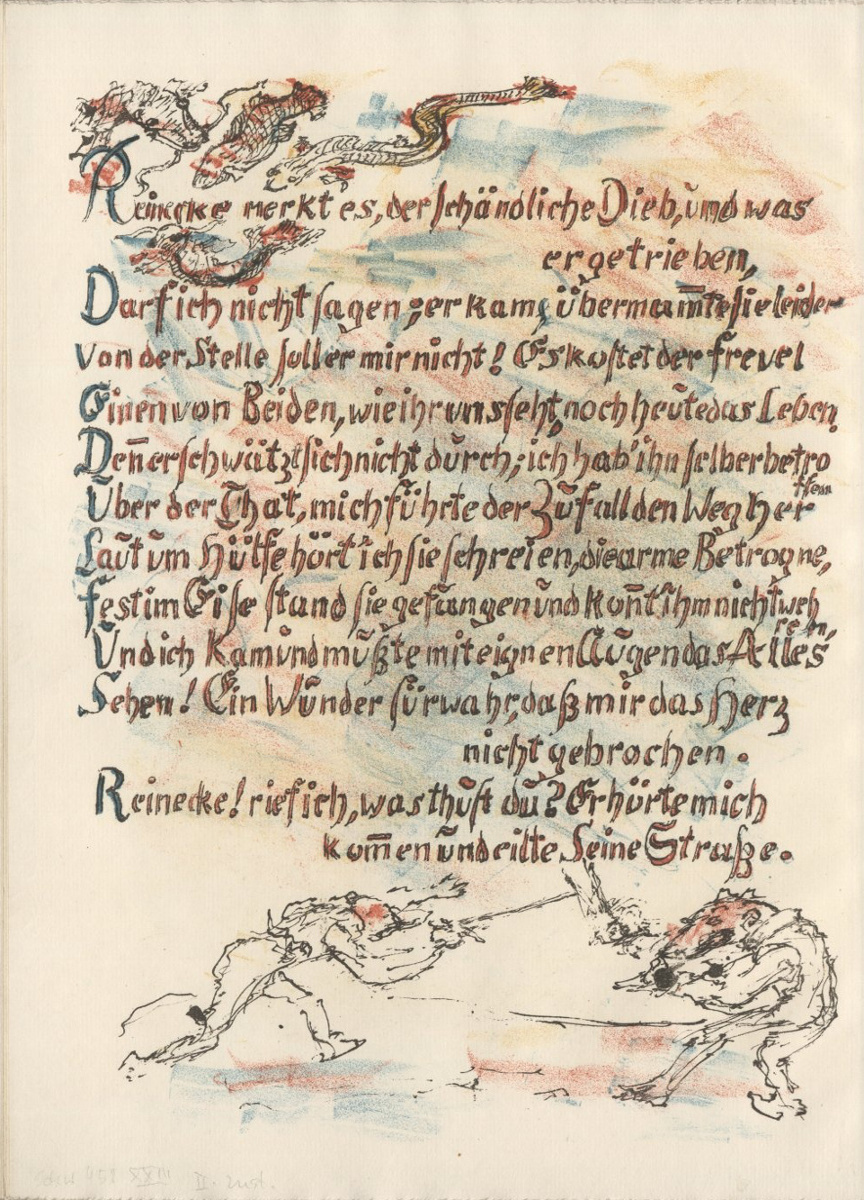 Reinecke merkt es, der schändliche Dieb, und was
er getrieben,
Darf ich nicht sagen; er kam, übermam̅te sie leider
Von der Stelle soll er mir nicht! Es kostet der Frevel
Einen von Beiden, wie ihr uns seht, noch heute das Leben.
Den̅ er schwätzt sich nicht durch; ich hab' ihn selber betro
ffen
Über der That, mich führte der Zufall den Weg her
Laut um Hülfe hört' ich sie schreien, die arme Betrogne,
Fest im Eise stand sie gefangen und kon̅t' ihm nicht weh
ren,
Und ich kam und mußte mit eignen Augen das Alles
Sehen! Ein Wunder fürwahr, daß mir das Herz
nicht gebrochen.
Reinecke! rief ich, was thust du? Er hörte mich
kom̅en und eilte Seine Straße.
XXIII II. Zust.